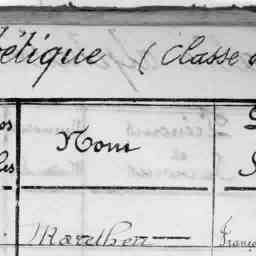 étique (Classe
os
Nom
les
Mardhen
Franço